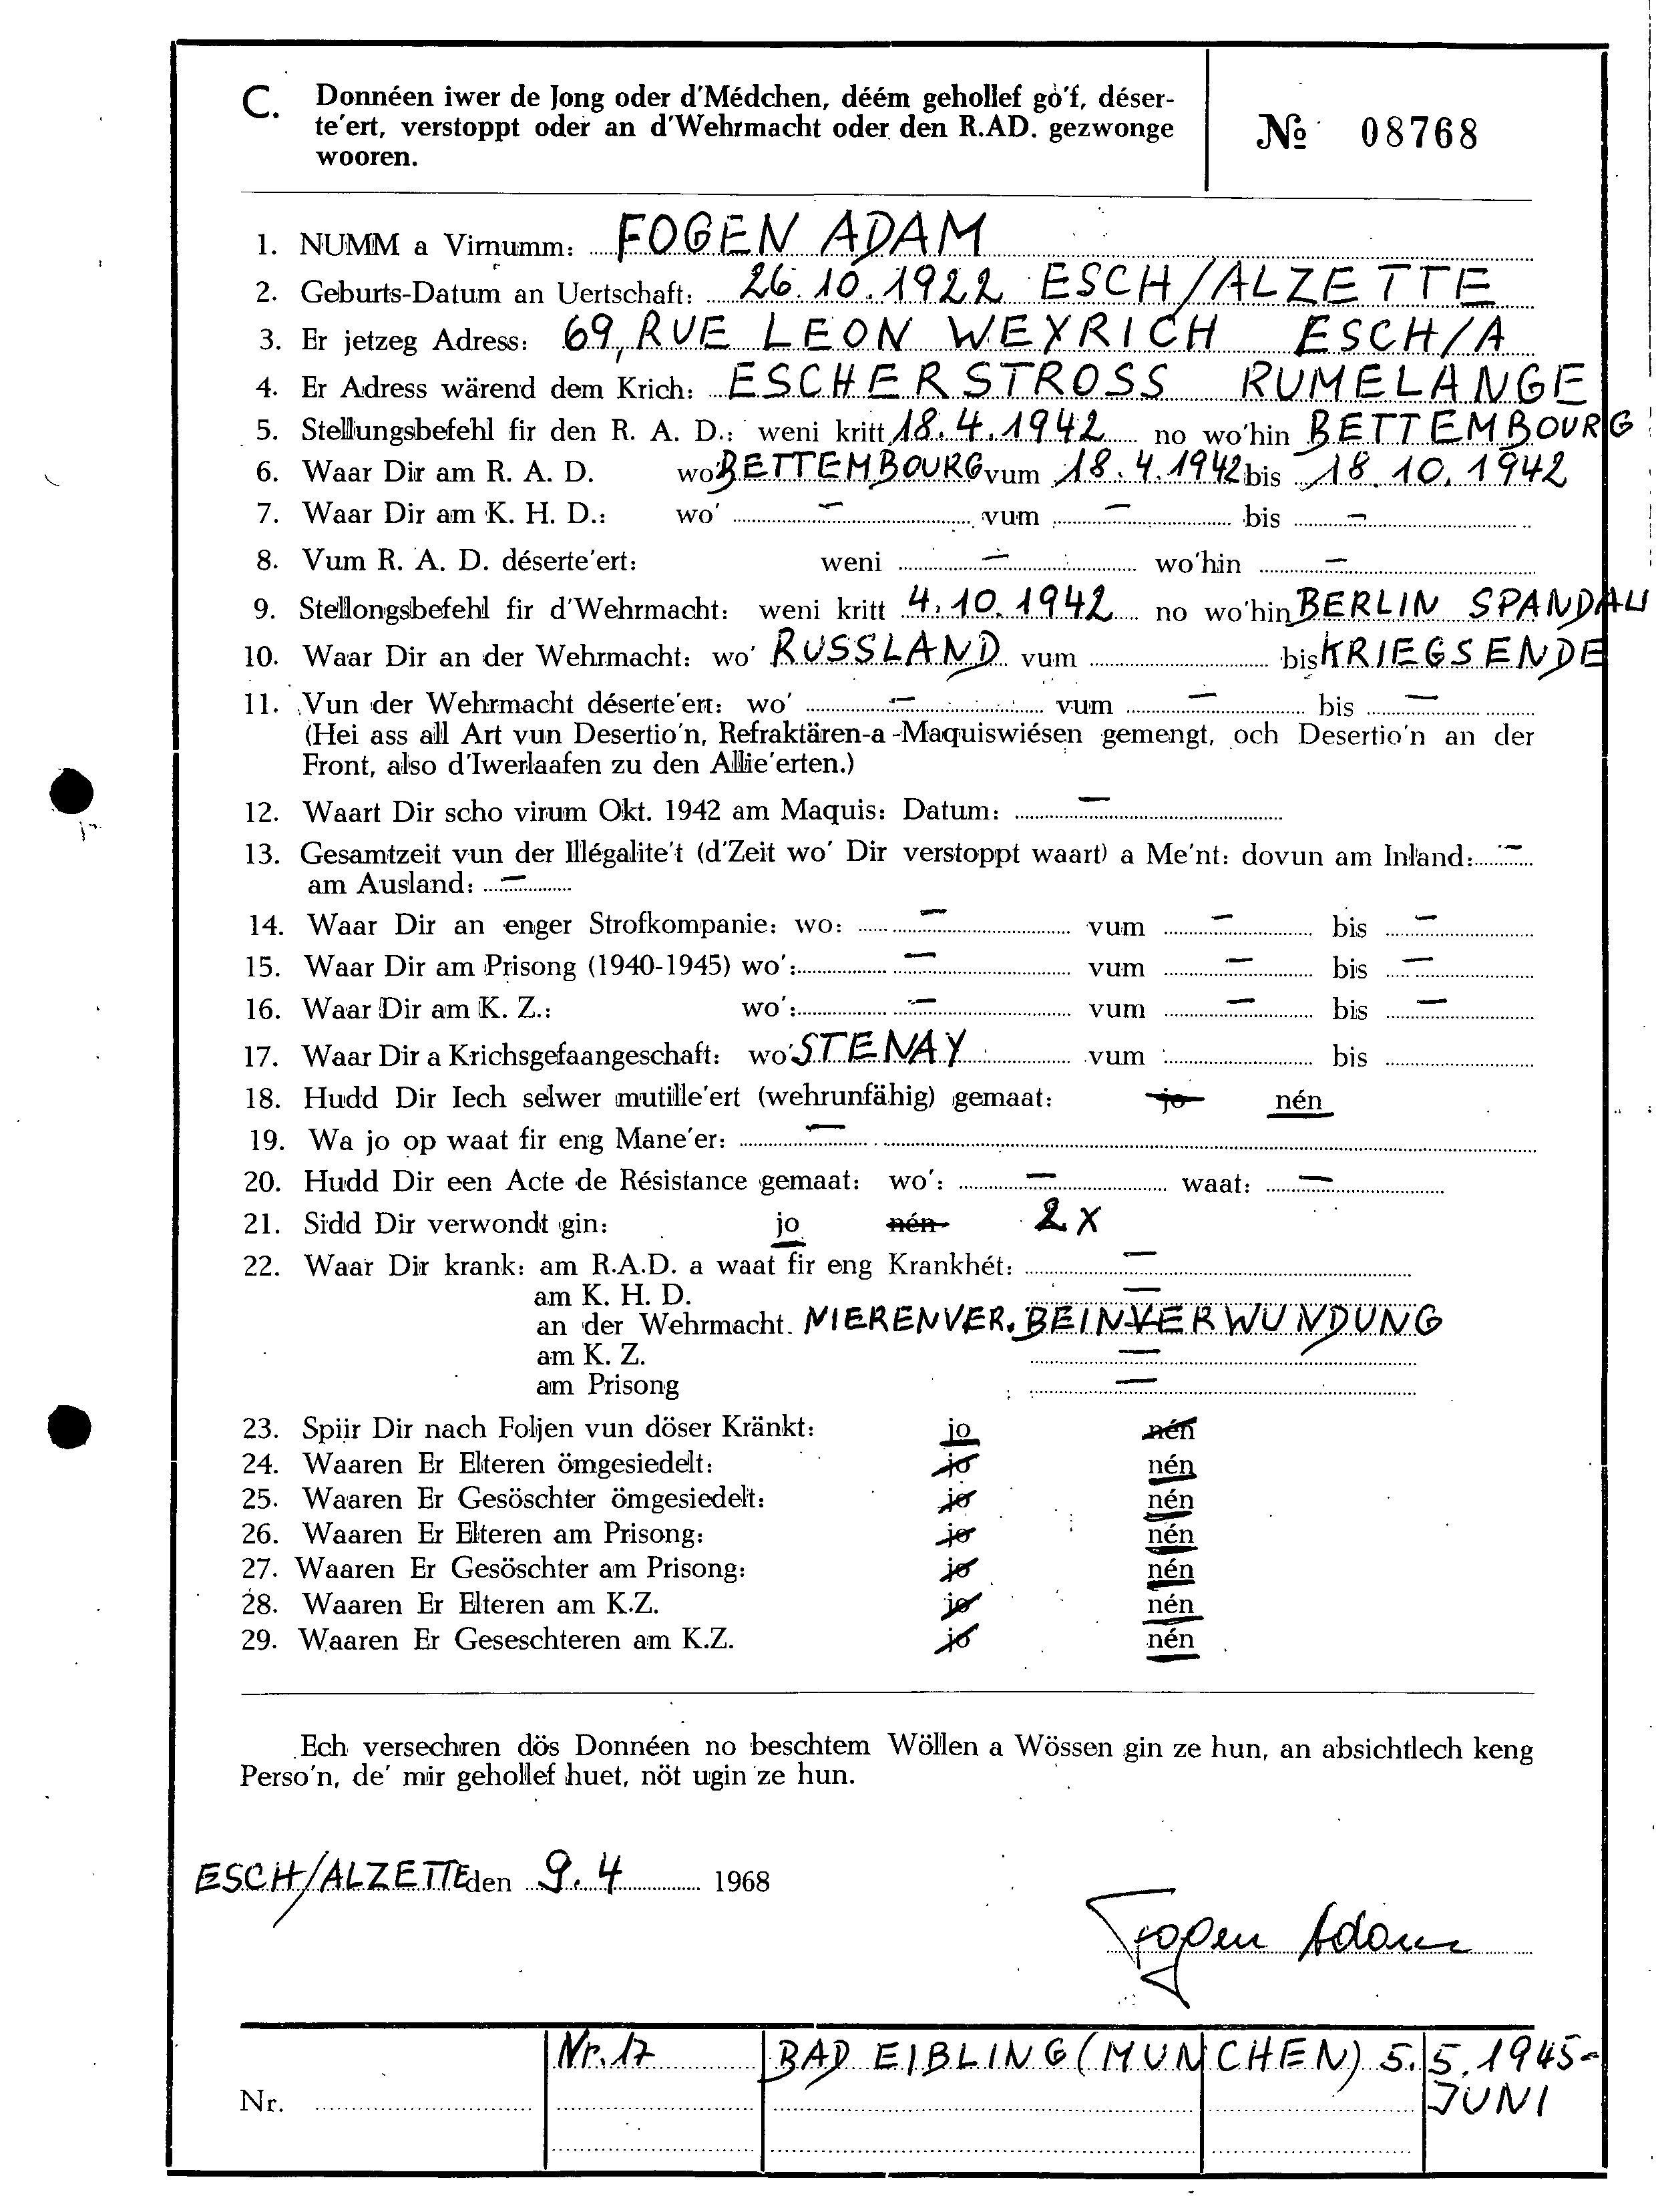 C. Donnéen iwer de Jong oder d'Médchen, déém gehollef go'f, déser-
te'ert, verstoppt oder an d'Wehrmacht oder den R.AD. gezwonge
wooren.
№ 08768
1. NUMM a Virnumm: FOGEN ADAM
2. Geburts-Datum an Uertschaft: 26.10.1922 ESCH/ALZETTE
3. Er jetzeg Adress: 69, RUE LEON WEYRICH ESCH/A
4. Er Adress wärend dem Krich: ESCHERSTROSS RUMELANGE
5. Stellungsbefehl fir den R. A. D.: weni kritt 18.4.1942 no wo'hin BETTEMBOURG
6. Waar Dir am R. A. D. wo' BETTEMBOURG vum 18.4.1942 bis 18.10.1942
7. Waar Dir am K. H. D.: wo' – vum – bis –
8. Vum R. A. D. déserte'ert: weni – wo'hin –
9. Stellongsbefehl fir d'Wehrmacht: weni kritt 4.10.1942 no wo'hin BERLIN SPANDAU
10. Waar Dir an der Wehrmacht: wo' RUSSLAND vum bis KRIEGSENDE
11. Vun der Wehrmacht déserte'ert: wo' – vum – bis –
(Hei ass all Art vun Desertio'n, Refraktären-a-Maquiswiésen gemengt, och Desertio'n an der
Front, also d'Iwerlaafen zu den Allie'erten.)
12. Waart Dir scho virum Okt. 1942 am Maquis: Datum: –
13. Gesamtzeit vun der Illégalite't (d'Zeit wo' Dir verstoppt waart) a Me'nt: dovun am Inland: –
am Ausland: –
14. Waar Dir an enger Strofkompanie: wo: – vum – bis –
15. Waar Dir am Prisong (1940-1945) wo': – vum – bis –
16. Waar Dir am K. Z.: wo': – vum – bis –
17. Waar Dir a Krichsgefaangeschaft: wo' STENAY vum bis
18. Hudd Dir Iech selwer mutille'ert (wehrunfähig) gemaat: jo nén
19. Wa jo op waat fir eng Mane'er: –
20. Hudd Dir een Acte de Résistance gemaat: wo': – waat: –
21. Sidd Dir verwondt gin: jo nén 2 X
22. Waar Dir krank: am R.A.D. a waat fir eng Krankhét: –
am K. H. D. –
an der Wehrmacht. NIERENVER. BEINVERWUNDUNG
am K. Z. –
am Prisong –
23. Spiir Dir nach Foljen vun döser Kränkt: jo nén
24. Waaren Er Elteren ömgesiedelt: jo nén
25. Waaren Er Gesöschter ömgesiedelt: jo nén
26. Waaren Er Elteren am Prisong: jo nén
27. Waaren Er Gesöschter am Prisong: jo nén
28. Waaren Er Elteren am K.Z. jo nén
29. Waaren Er Geseschteren am K.Z. jo nén
Ech versechren dös Donnéen no beschtem Wöllen a Wössen gin ze hun, an absichtlech keng
Perso'n, de' mir gehollef huet, nöt ugin ze hun.
ESCH/ALZETTE den 9.4 1968
Fogen Adam
Nr. 17 BAD EIBLING (MUNCHEN) 5.5.1945-
Nr. JUNI